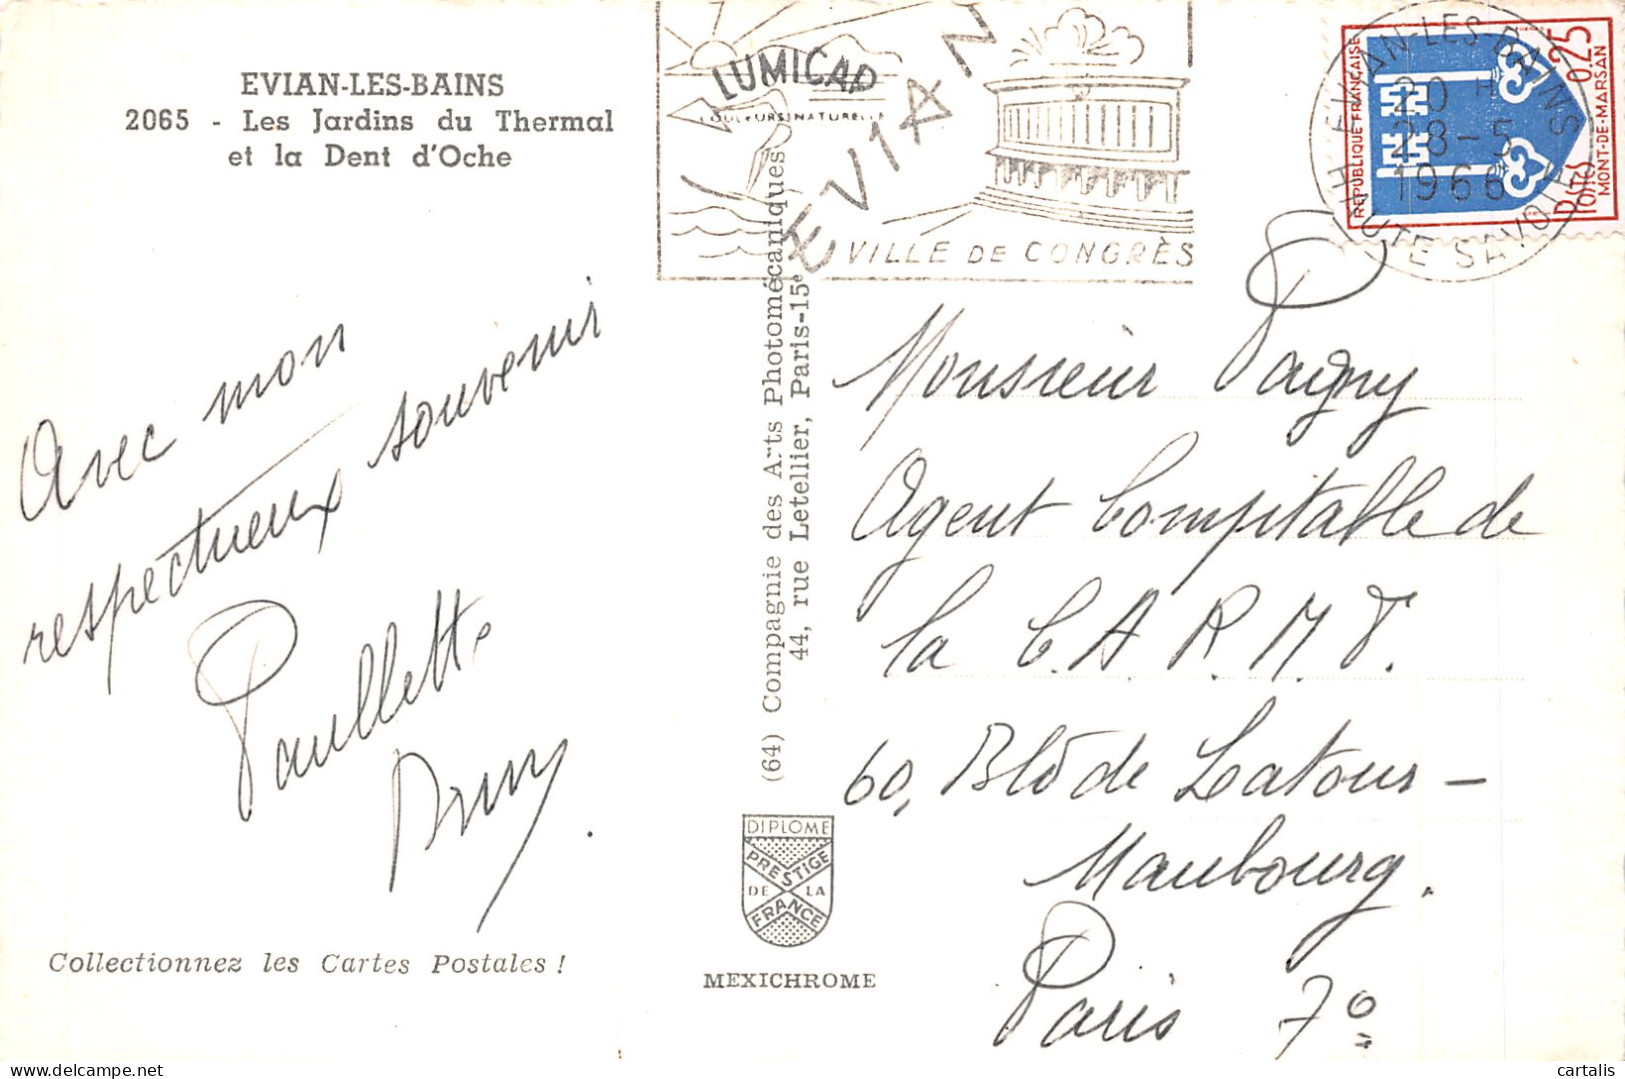 EVIAN-LES-BAINS
2065 - Les Jardins du Thermal
et la Dent d'Oche
Avec mon
respectueux souvenir
Paullette
Collectionnez les Cartes Postales !
LUMICAP
COULEURS NATURELLES
EVIAN
VILLE DE CONGRÈS
(64) Compagnie des Arts Photomécaniques
44, rue Letellier, Paris-15e
DIPLOME
PRESTIGE
DE LA
FRANCE
MEXICHROME
EVIAN-LES-BAINS
20 H
28-5
1966
HAUTE SAVOIE
REPUBLIQUE FRANÇAISE
0,25
POSTES
MONT-DE-MARSAN
Monsieur Pagny
Agent Comptable de
la C.A.R.M.V.
60, Bld de Latour-
Maubourg.
Paris 7e
cartalis